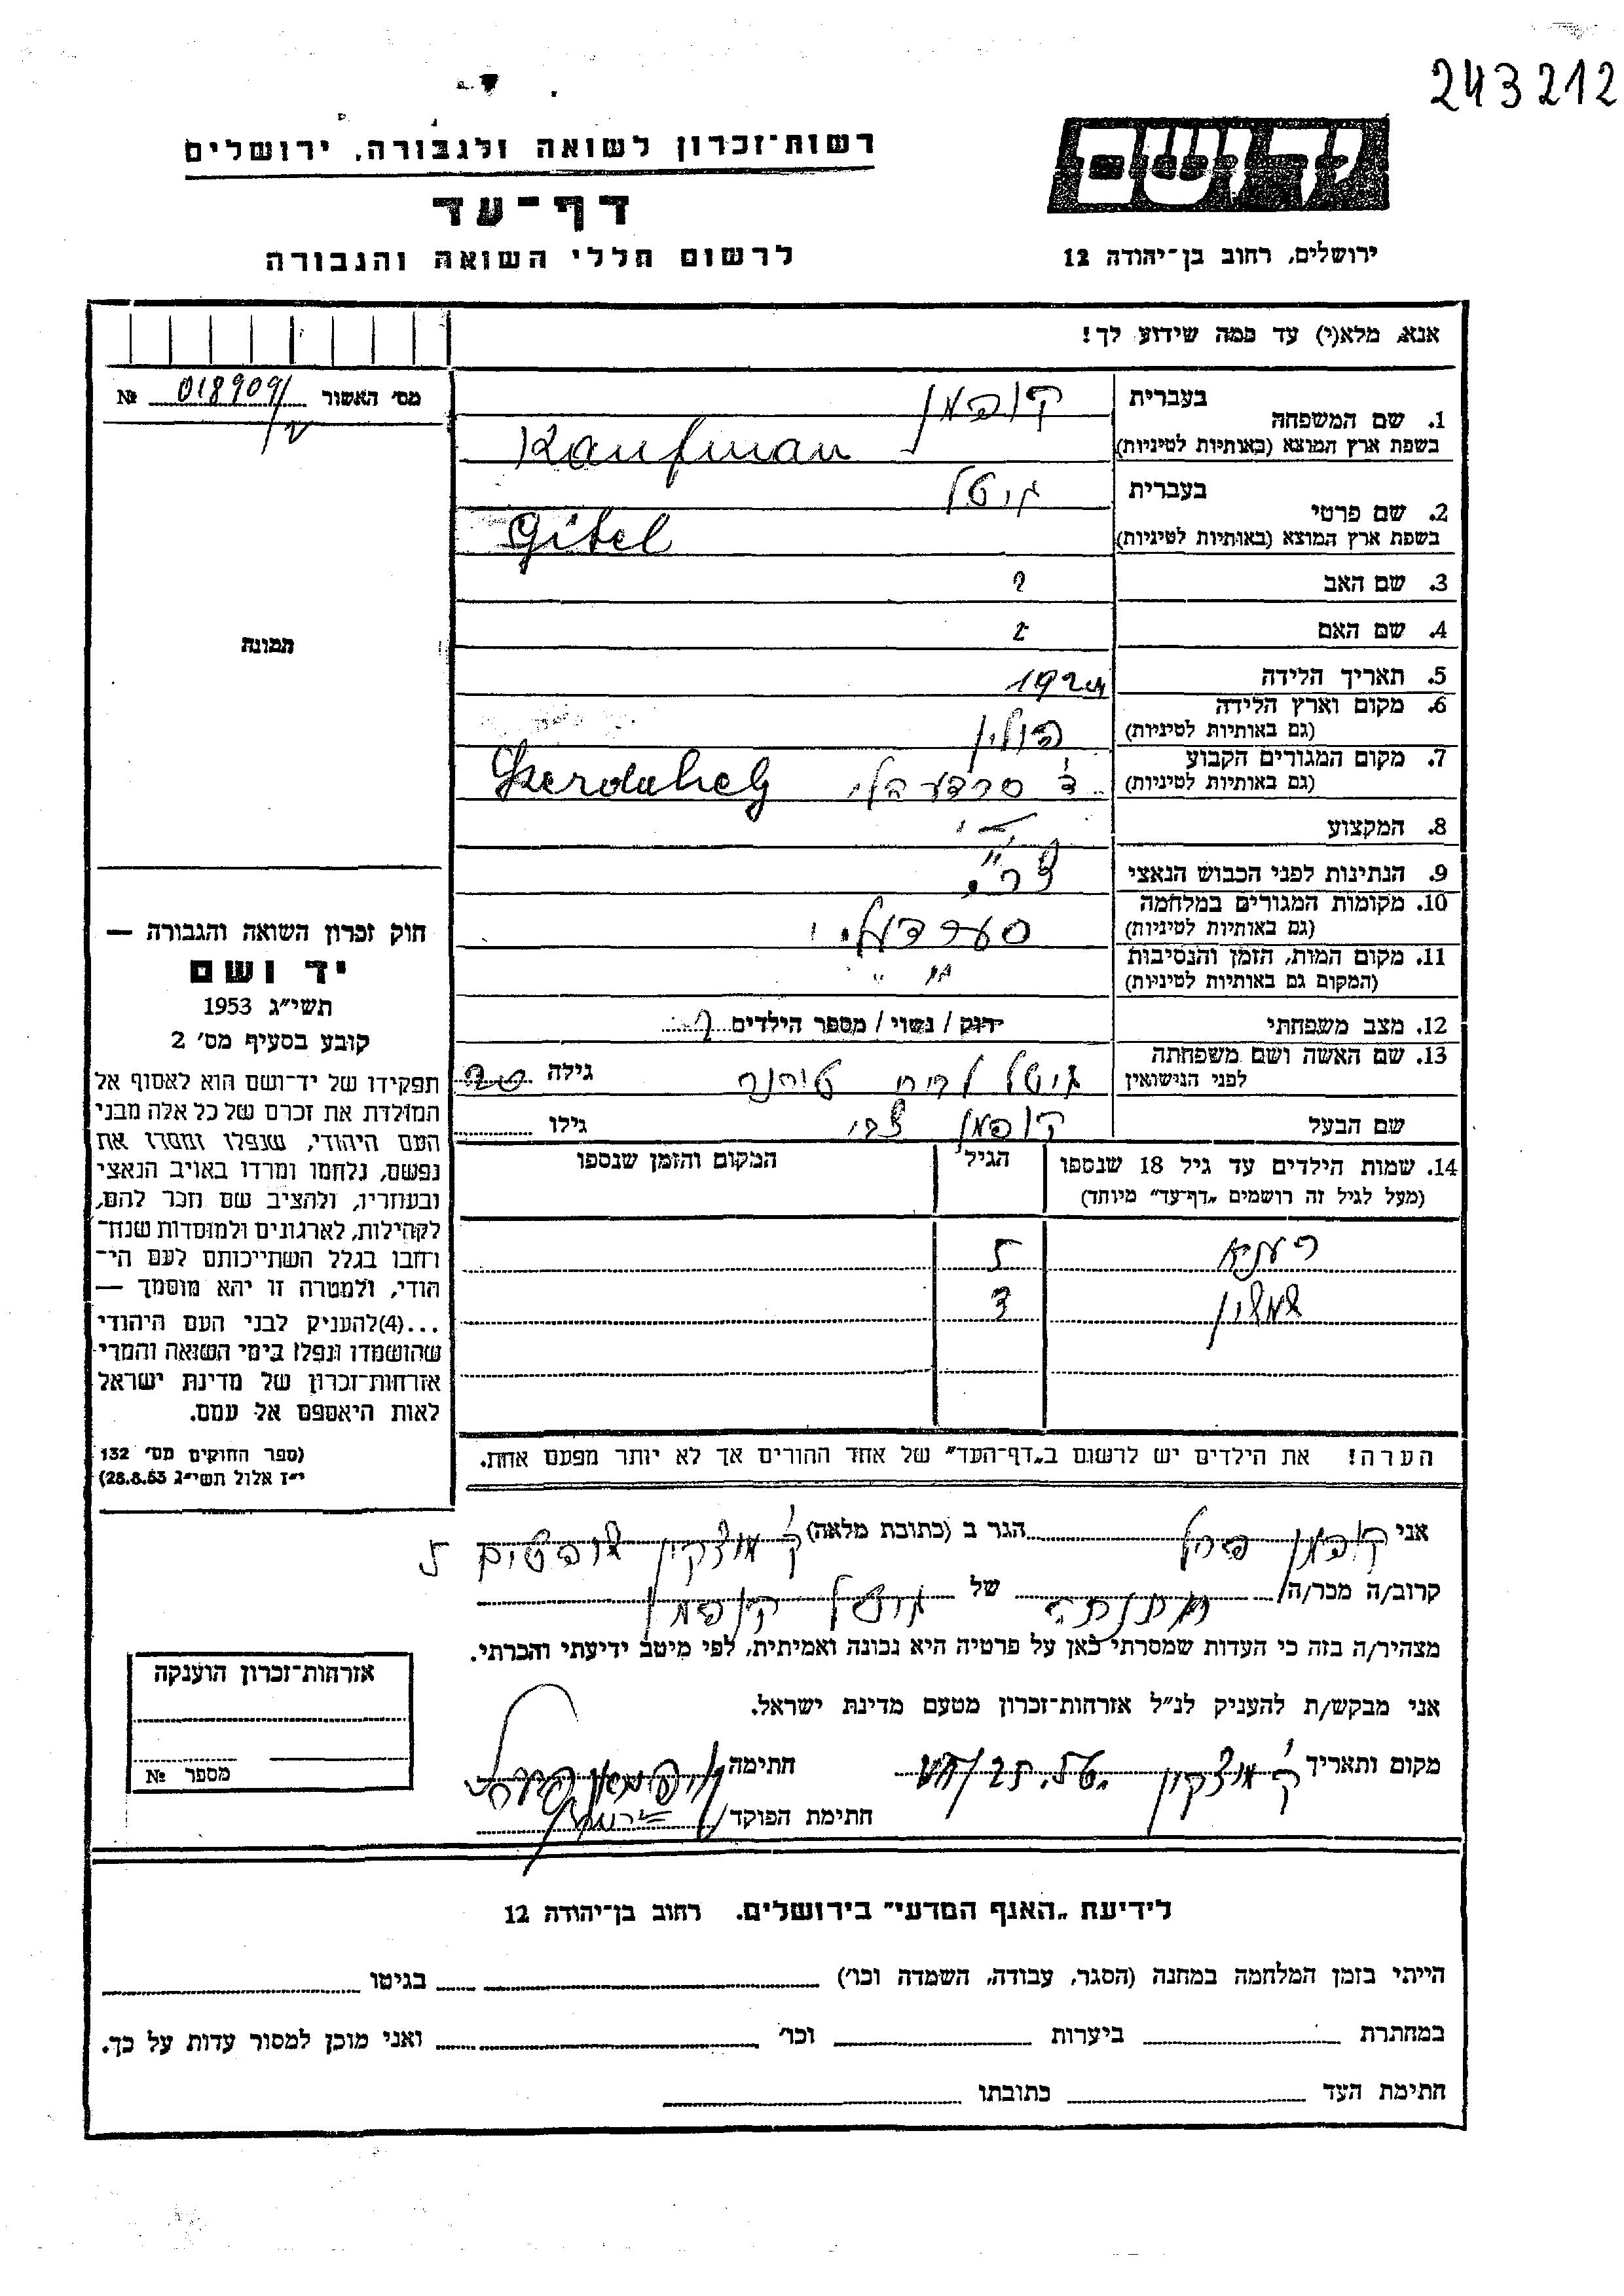 243212
רשות־זכרון לשואה ולגבורה, ירושלים
דף־עד
לרשום חללי השואה והגבורה
יד ושם
ירושלים, רחוב בן־יהודה 12
אנא, מלא(י) עד כמה שידוע לך!
מס׳ האשור 018909/ №
1. שם המשפחה
בעברית קופמן
בשפת ארץ המוצא (באותיות לטיניות) Kaufman
2. שם פרטי
בעברית גיטל
בשפת ארץ המוצא (באותיות לטיניות) Gitel
3. שם האב ?
4. שם האם ?
5. תאריך הלידה
6. מקום וארץ הלידה
(גם באותיות לטיניות) פולין
7. מקום המגורים הקבוע
(גם באותיות לטיניות) Szerdahely
8. המקצוע
9. הנתינות לפני הכבוש הנאצי
10. מקומות המגורים במלחמה
(גם באותיות לטיניות)
11. מקום המות, הזמן והנסיבות
(המקום גם באותיות לטיניות)
12. מצב משפחתי רווק / נשוי / מספר הילדים
13. שם האשה ושם משפחתה
לפני הנישואין גיטל גילה
שם הבעל קופמן צבי גילו
14. שמות הילדים עד גיל 18 שנספו
(מעל לגיל זה רושמים „דף־עד״ מיוחד)
הגיל
המקום והזמן שנספו
5
שמעון 3
הערה! את הילדים יש לרשום ב„דף־העד״ של אחד ההורים אך לא יותר מפעם אחת.
תמונה
חוק זכרון השואה והגבורה —
יד ושם
תשי״ג 1953
קובע בסעיף מס׳ 2
תפקידו של יד־ושם הוא לאסוף אל
המולדת את זכרם של כל אלה מבני
העם היהודי, שנפלו ומסרו את
נפשם, נלחמו ומרדו באויב הנאצי
ובעוזריו, ולהציב שם וזכר להם,
לקהילות, לארגונים ולמוסדות שנח־
רחבו בגלל השתייכותם לעם הי־
הודי, ולמטרה זו יהא מוסמך —
...(4)להעניק לבני העם היהודי
שהושמדו ונפלו בימי השואה והמרי
אזרחות־זכרון של מדינת ישראל
לאות היאספם אל עמם.
(ספר החוקים מס׳ 132
י״ז אלול תשי״ג 28.8.53)
אני קופמן הגר ב (כתובת מלאה) ק׳ מוצקין 5
קרוב/ה מכר/ה/ של גיטל קופמן
מצהיר/ה בזה כי העדות שמסרתי כאן על פרטיה היא נכונה ואמיתית, לפי מיטב ידיעתי והכרתי.
אני מבקש/ת להעניק לנ״ל אזרחות־זכרון מטעם מדינת ישראל.
מקום ותאריך ק׳ מוצקין חתימה
חתימת הפוקד
אזרחות־זכרון הוענקה
מספר №
לידיעת „האגף המדעי״ בירושלים. רחוב בן־יהודה 12
הייתי בזמן המלחמה במחנה (הסגר, עבודה, השמדה וכו׳) בגיטו
במחתרת ביערות וכו׳ ואני מוכן למסור עדות על כך.
חתימת העד כתובתו